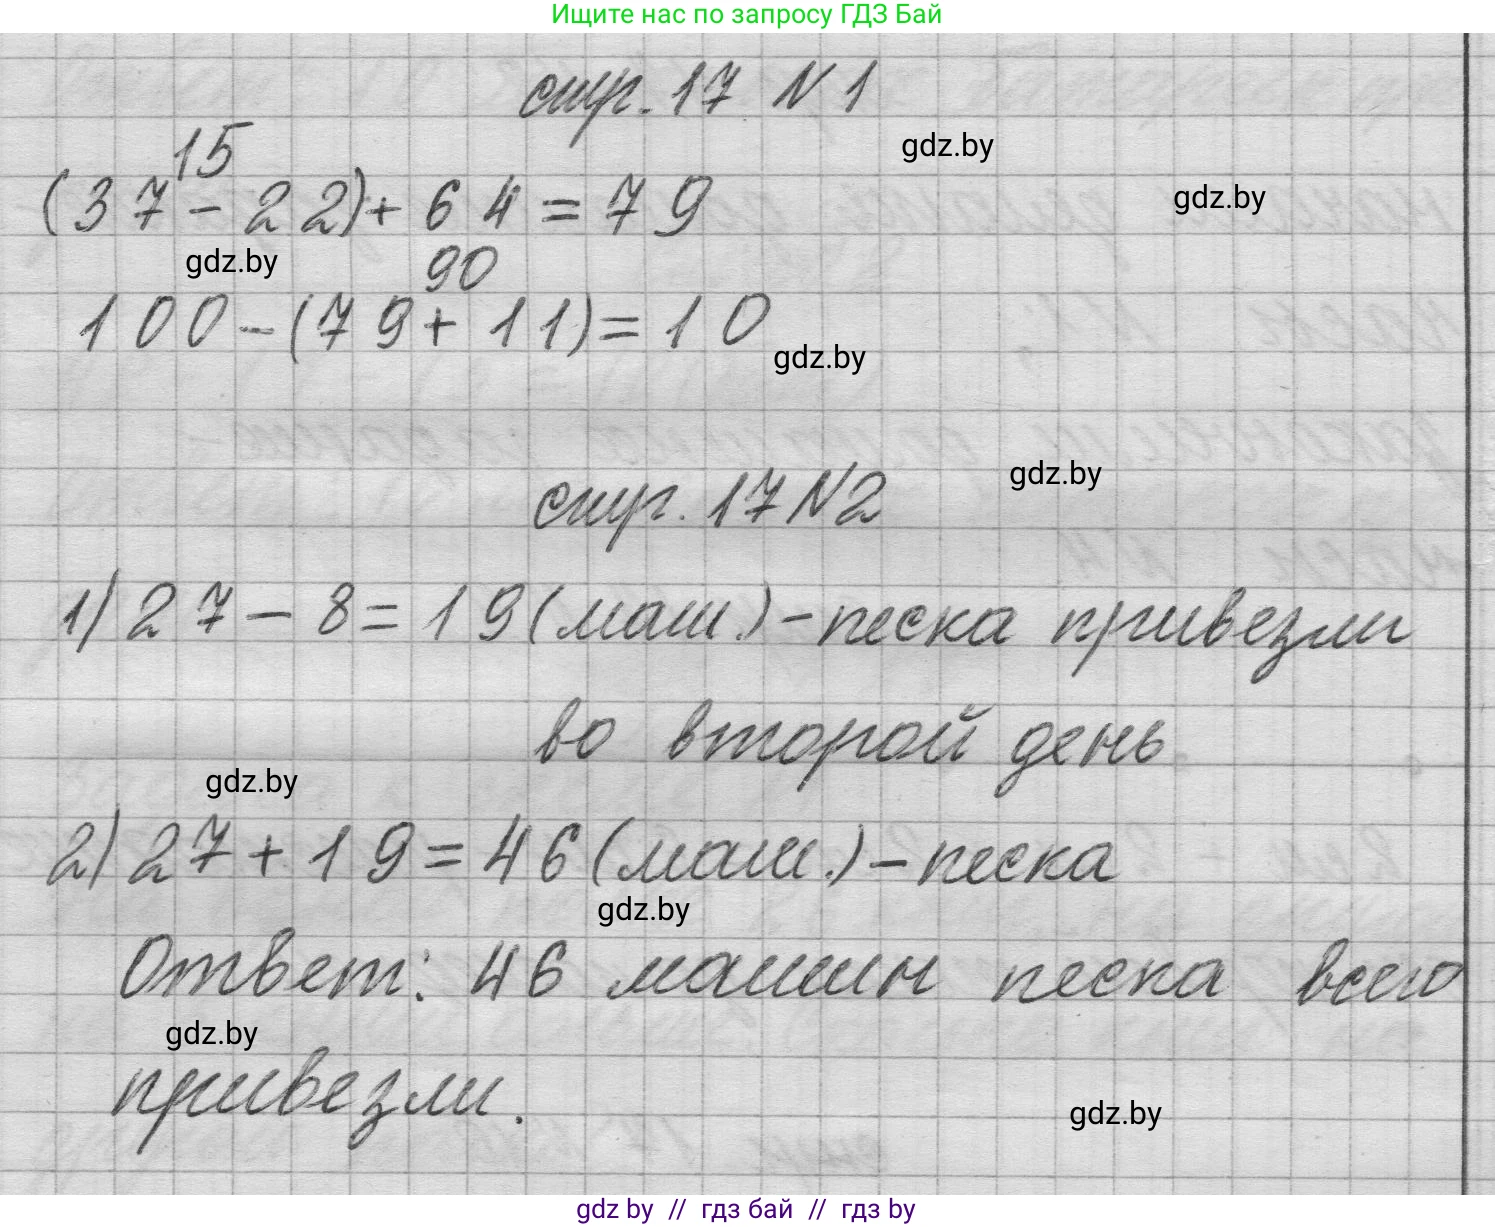 Ищите нас по запросу ГДЗ Бай
стр. 17 N 1
gdz.by
15
(37-22)+64=79
gdz.by
gdz.by
90
100-(79+11)=10
gdz.by
стр. 17 N2
gdz.by
1) 27-8=19(маш.)-песка привезли
во второй день.
gdz.by
2) 27+19=46(маш.)-песка
gdz.by
Ответ: 46 машин песка всего
gdz.by
привезли.
gdz.by
gdz by // гдз бай // гдз by